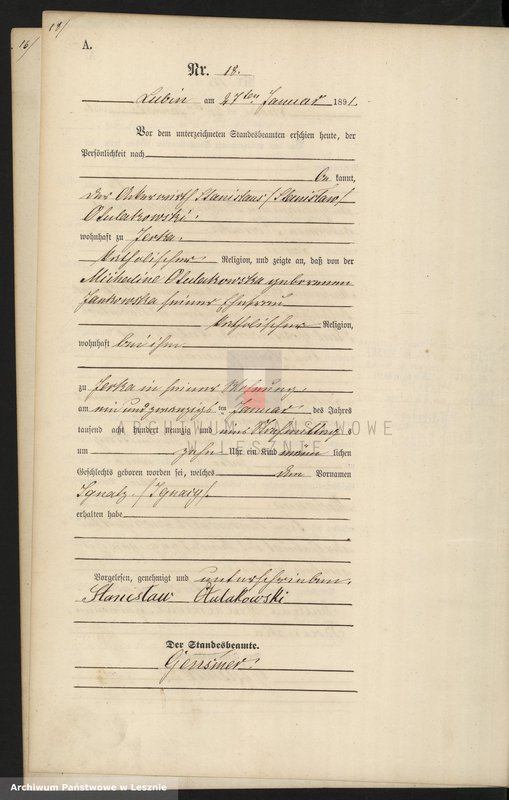 16/
18/
A.
Nr. 18.
Lubin am 27ten Januar 1891.
Vor dem unterzeichneten Standesbeamten erschien heute, der
Persönlichkeit nach
be kannt,
der Ackerwirth Stanislaus /Stanislaw/
Otulakowski,
wohnhaft zu Jerka,
katholischer Religion, und zeigte an, daß von der
Michaline Otulakowska geborenen
Jankowska seiner Ehefrau
katholischer Religion,
wohnhaft bei ihm
zu Jerka in seiner Wohnung,
am ein und zwanzigsten Januar des Jahres
tausend acht hundert neunzig und eins Nachmittags
um zehn Uhr ein Kind männ lichen
Geschlechts geboren worden sei, welches den Vornamen
Ignatz /Ignacy/
erhalten habe
Vorgelesen, genehmigt und unterschrieben.
Stanisław Otulakowski
Der Standesbeamte.
Gensmer.
ARCHIWUM PAŃSTWOWE
W LESZNIE
Archiwum Państwowe w Lesznie